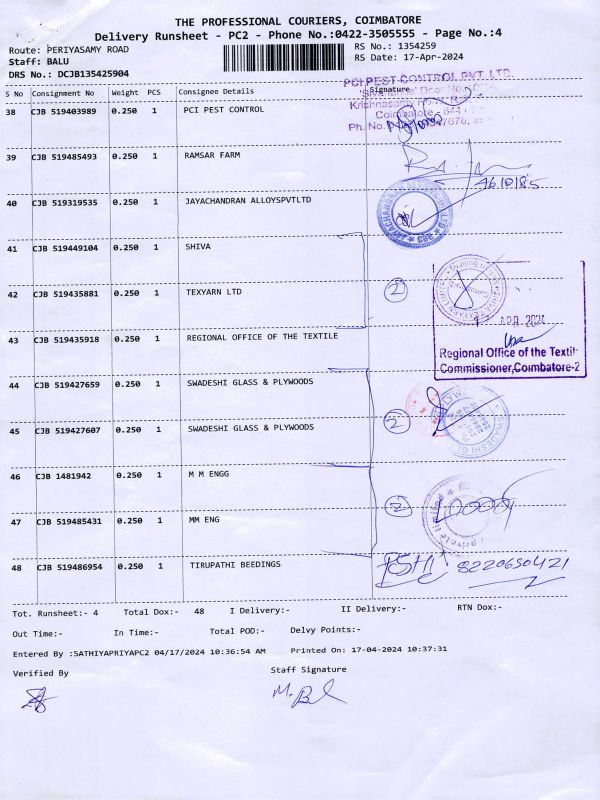 THE PROFESSIONAL COURIERS, COIMBATORE
Delivery Runsheet - PC2 - Phone No.:0422-3505555 - Page No.:4
Route: PERIYASAMY ROAD
RS No.: 1354259
Staff: BALU
RS Date: 17-Apr-2024
DRS No.: DCJB135425904
PCI PEST CONTROL PVT. LTD.
S No Consignment No Weight PCS Consignee Details Signature
38 CJB 519403989 0.250 1 PCI PEST CONTROL
Coimbatore
Ph. No.
39 CJB 519485493 0.250 1 RAMSAR FARM
40 CJB 519319535 0.250 1 JAYACHANDRAN ALLOYSPVTLTD
41 CJB 519449104 0.250 1 SHIVA
42 CJB 519435881 0.250 1 TEXYARN LTD 2
APR 2024
43 CJB 519435918 0.250 1 REGIONAL OFFICE OF THE TEXTILE
Regional Office of the Textil
Commissioner,Coimbatore-2
44 CJB 519427659 0.250 1 SWADESHI GLASS & PLYWOODS
45 CJB 519427607 0.250 1 SWADESHI GLASS & PLYWOODS 2
46 CJB 1481942 0.250 1 M M ENGG
2
47 CJB 519485431 0.250 1 MM ENG
48 CJB 519486954 0.250 1 TIRUPATHI BEEDINGS 8220650421
Tot. Runsheet:- 4 Total Dox:- 48 I Delivery:- II Delivery:- RTN Dox:-
Out Time:- In Time:- Total POD:- Delvy Points:-
Entered By :SATHIYAPRIYAPC2 04/17/2024 10:36:54 AM Printed On: 17-04-2024 10:37:31
Verified By Staff Signature